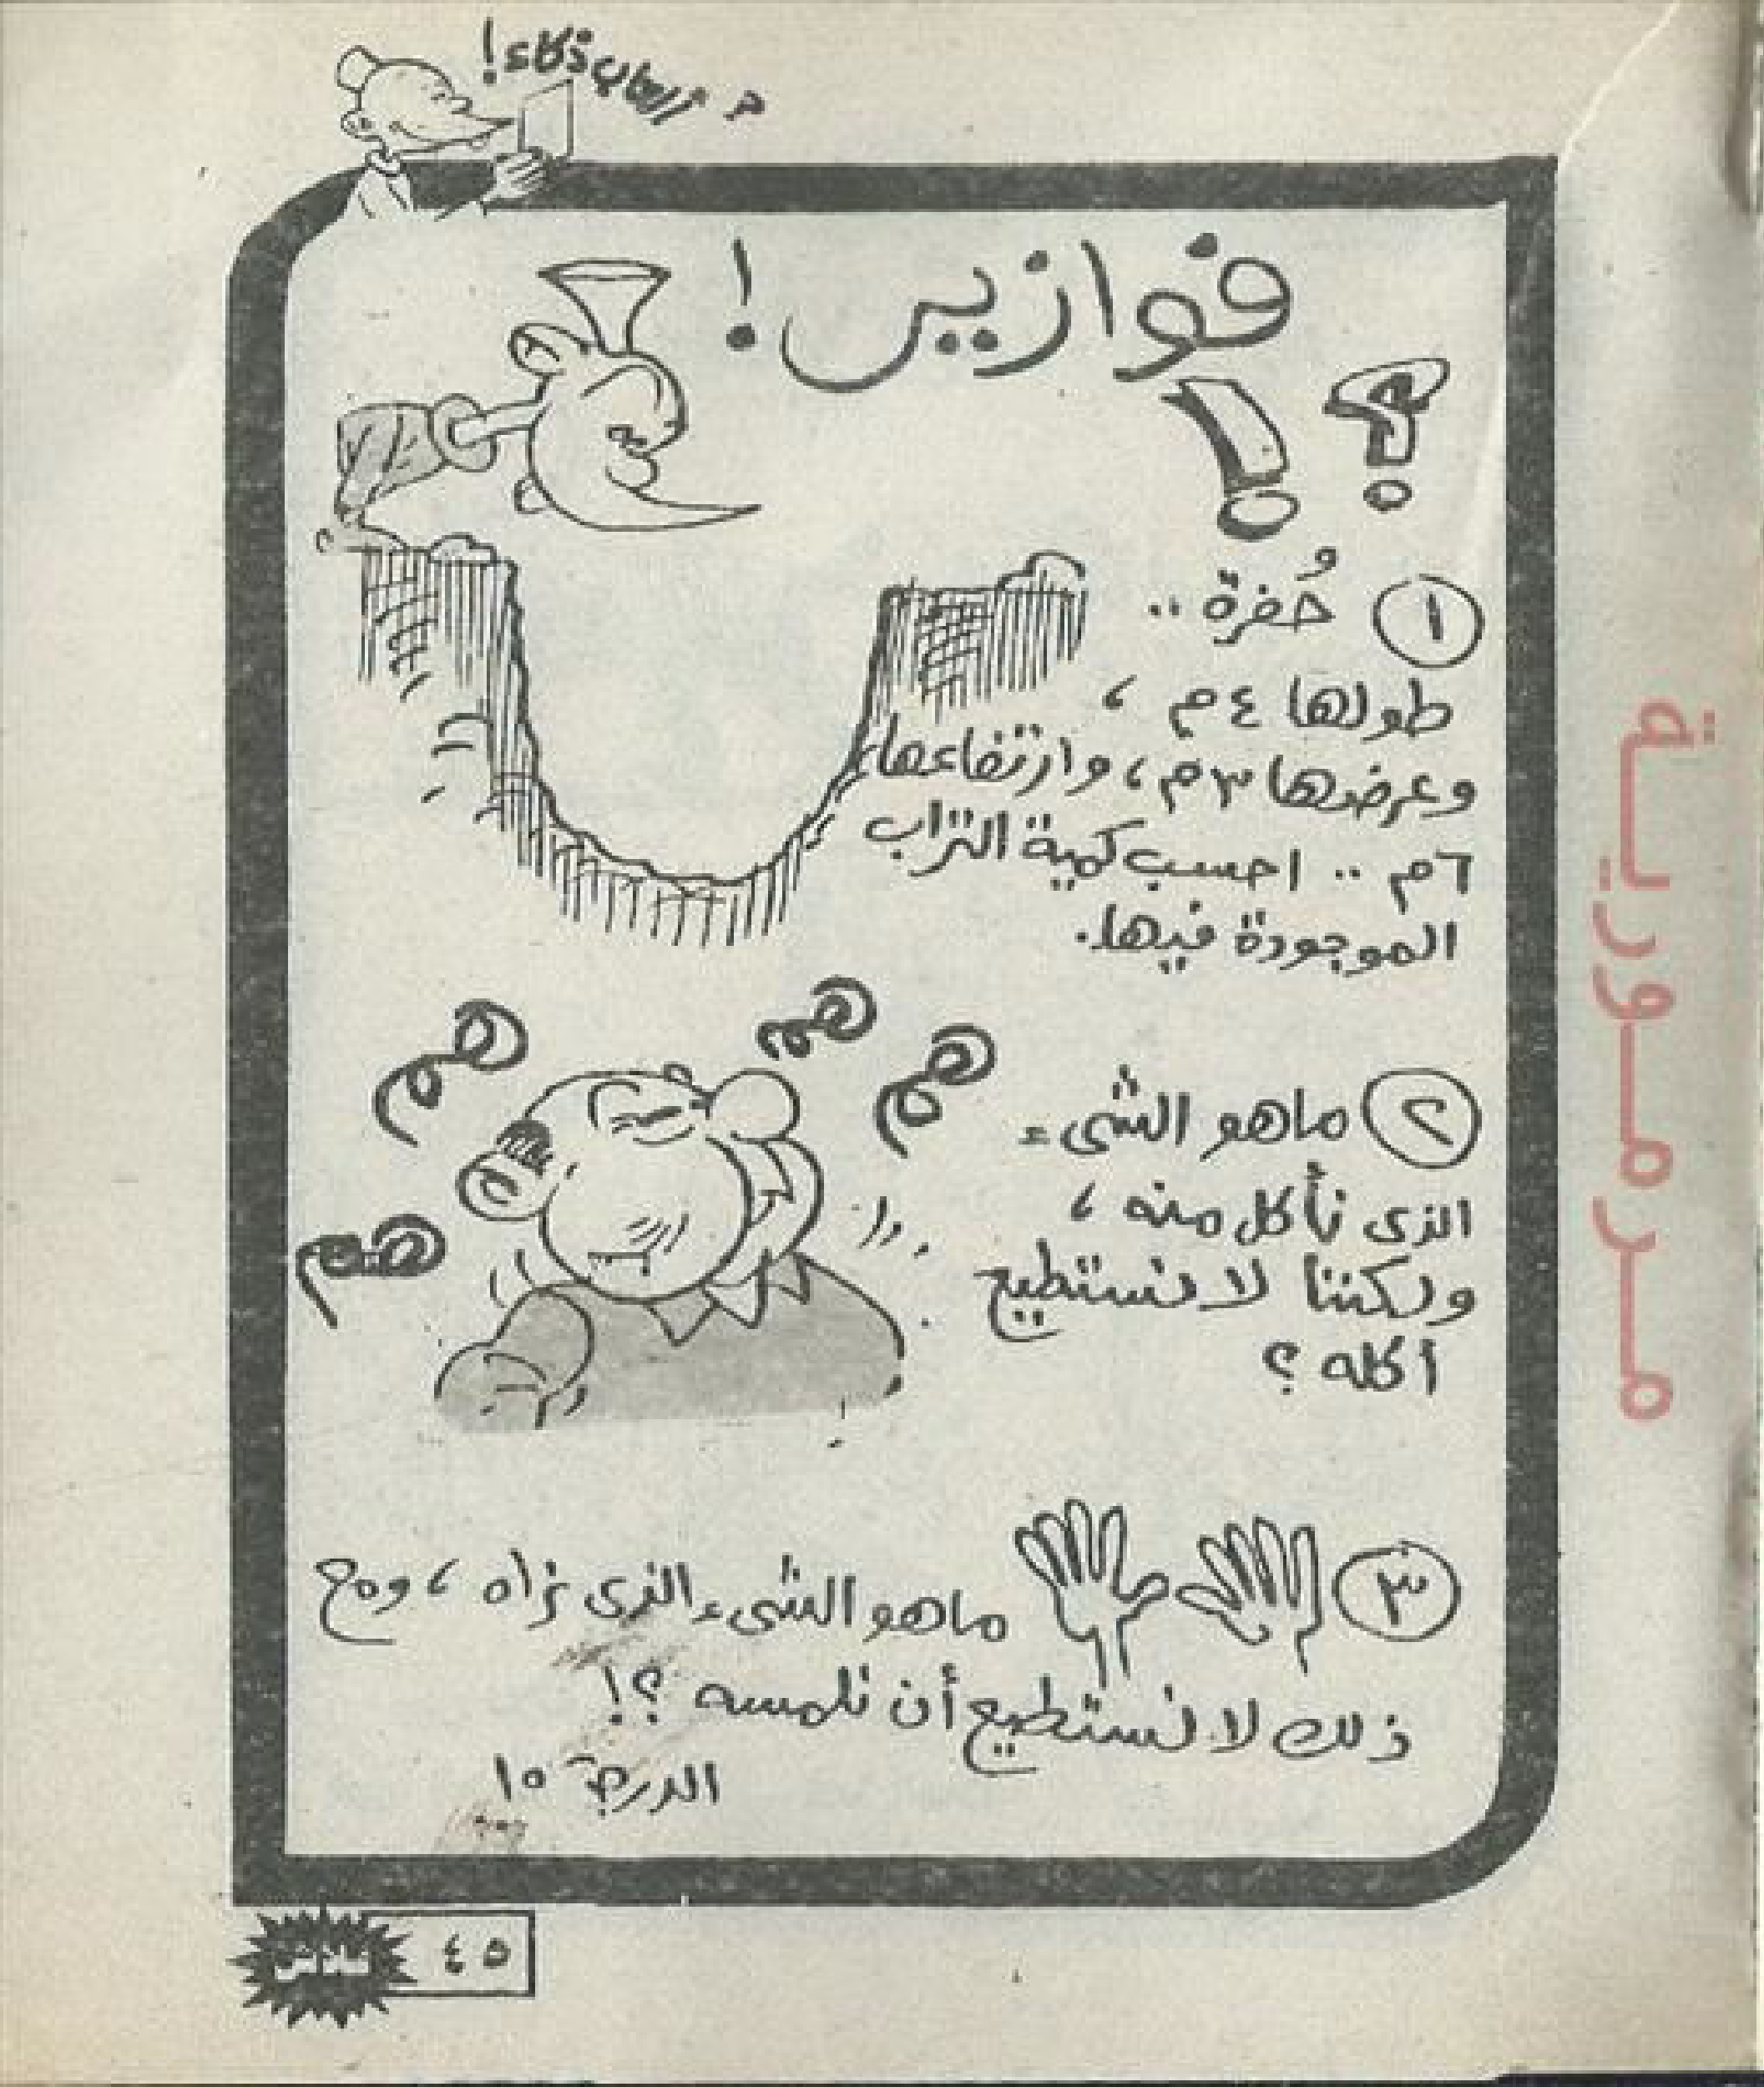 ألعاب ذكاء!
فوازير!
؟!
١ حُفرة ..
طولها ٤م ،
وعرضها ٣م ، وارتفاعها
٦م .. احسب كمية التراب
الموجودة فيها.
هم هم هم هم
٢ ماهو الشىء
الذى نأكل منه ،
ولكننا لا نستطيع
أكله ؟
٣ ماهو الشىء الذى نراه ، ومع
ذلك لا نستطيع أن نلمسه ؟!
الدرجة ١٥
٤٥
فلاش
مرمورية